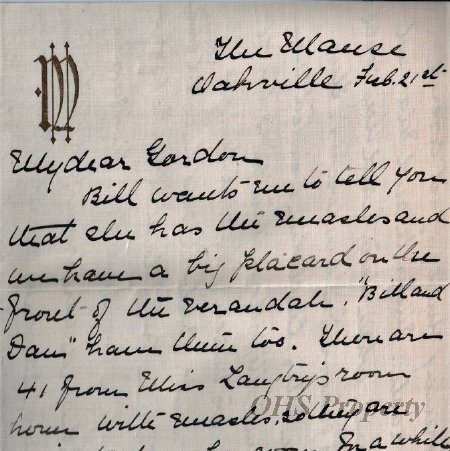 M
The Manse
Oakville Feb. 21st
My dear Gordon
Bill wants me to tell you
that she has the measles and
we have a big placard on the
front of the verandah. "Bill and
Dau" have them too. There are
41 from Miss Langtry's room
home with measles, so they are
OHS Property
for a while